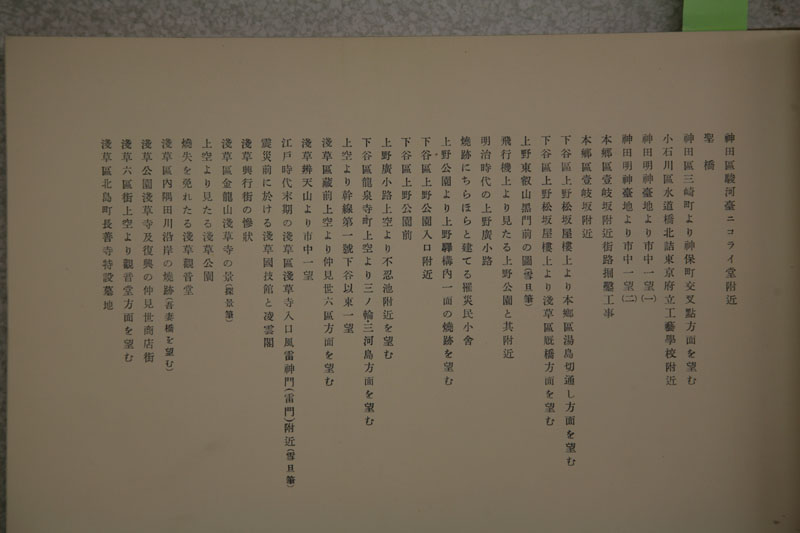 神田區駿河臺ニコライ堂附近
聖橋
神田區三崎町より神保町交叉點方面を望む
小石川區水道橋北詰東京府立工藝學校附近
神田明神臺地より市中一望(一)
神田明神臺地より市中一望(二)
本鄕區壹岐坂附近街路掘鑿工事
本鄕區壹岐坂附近
下谷區上野松坂屋樓上より本鄕區湯島切通し方面を望む
下谷區上野松坂屋樓上より淺草區厩橋方面を望む
上野東叡山黒門前の圖(雪旦筆)
飛行機上より見たる上野公園と其附近
明治時代の上野廣小路
燒跡にちらほらと建てる罹災民小舍
上野公園より上野驛構內一面の燒跡を望む
下谷區上野公園入口附近
下谷區上野公園前
上野廣小路上空より不忍池附近を望む
下谷區龍泉寺町上空より三ノ輪・三河島方面を望む
上空より幹線第一號下谷以東一望
淺草區藏前上空より仲見世六區方面を望む
淺草辨天山より市中一望
江戶時代末期の淺草區淺草寺入口風雷神門(雷門)附近(雪旦筆)
震災前に於ける淺草國技館と凌雲閣
淺草興行街の慘狀
淺草區金龍山淺草寺の景(探景筆)
上空より見たる淺草公園
燒失を免れたる淺草觀音堂
淺草區內隅田川沿岸の燒跡(吾妻橋を望む)
淺草公園淺草寺及復興の仲見世商店街
淺草六區街上空より觀音堂方面を望む
淺草區北島町長善寺特設墓地